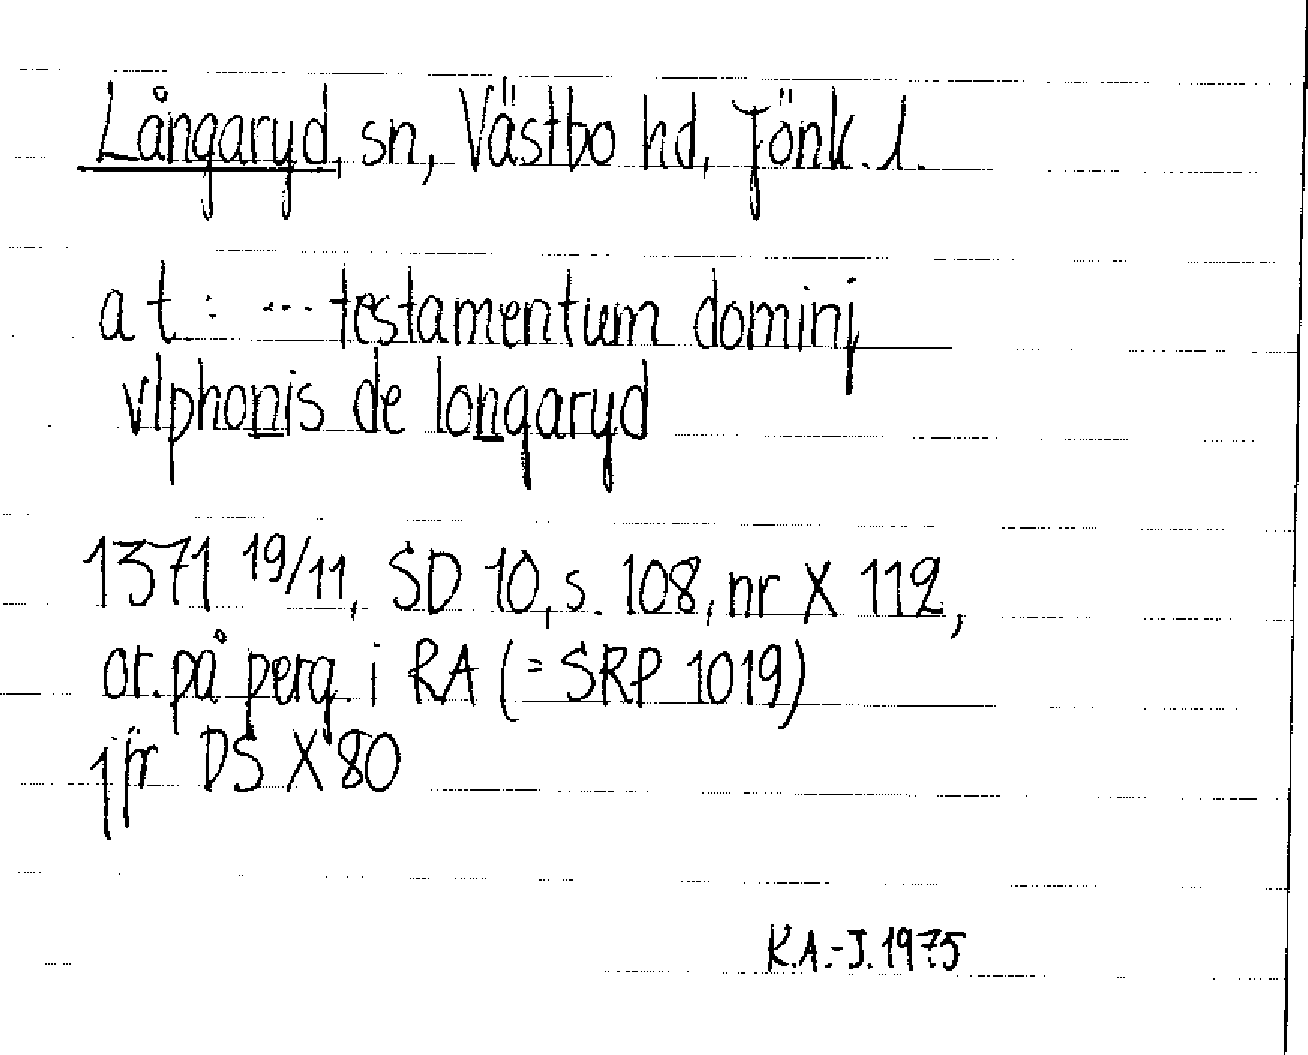 Långaryd, sn, Västbo hd, Jönk. l.
a t: ... testamentum dominj
vlphonis de longaryd
1371 19/11, SD 10, s. 108, nr X 112,
or. på perg. i RA (= SRP 1019)
jfr DS X 80
K.A.-J. 1975